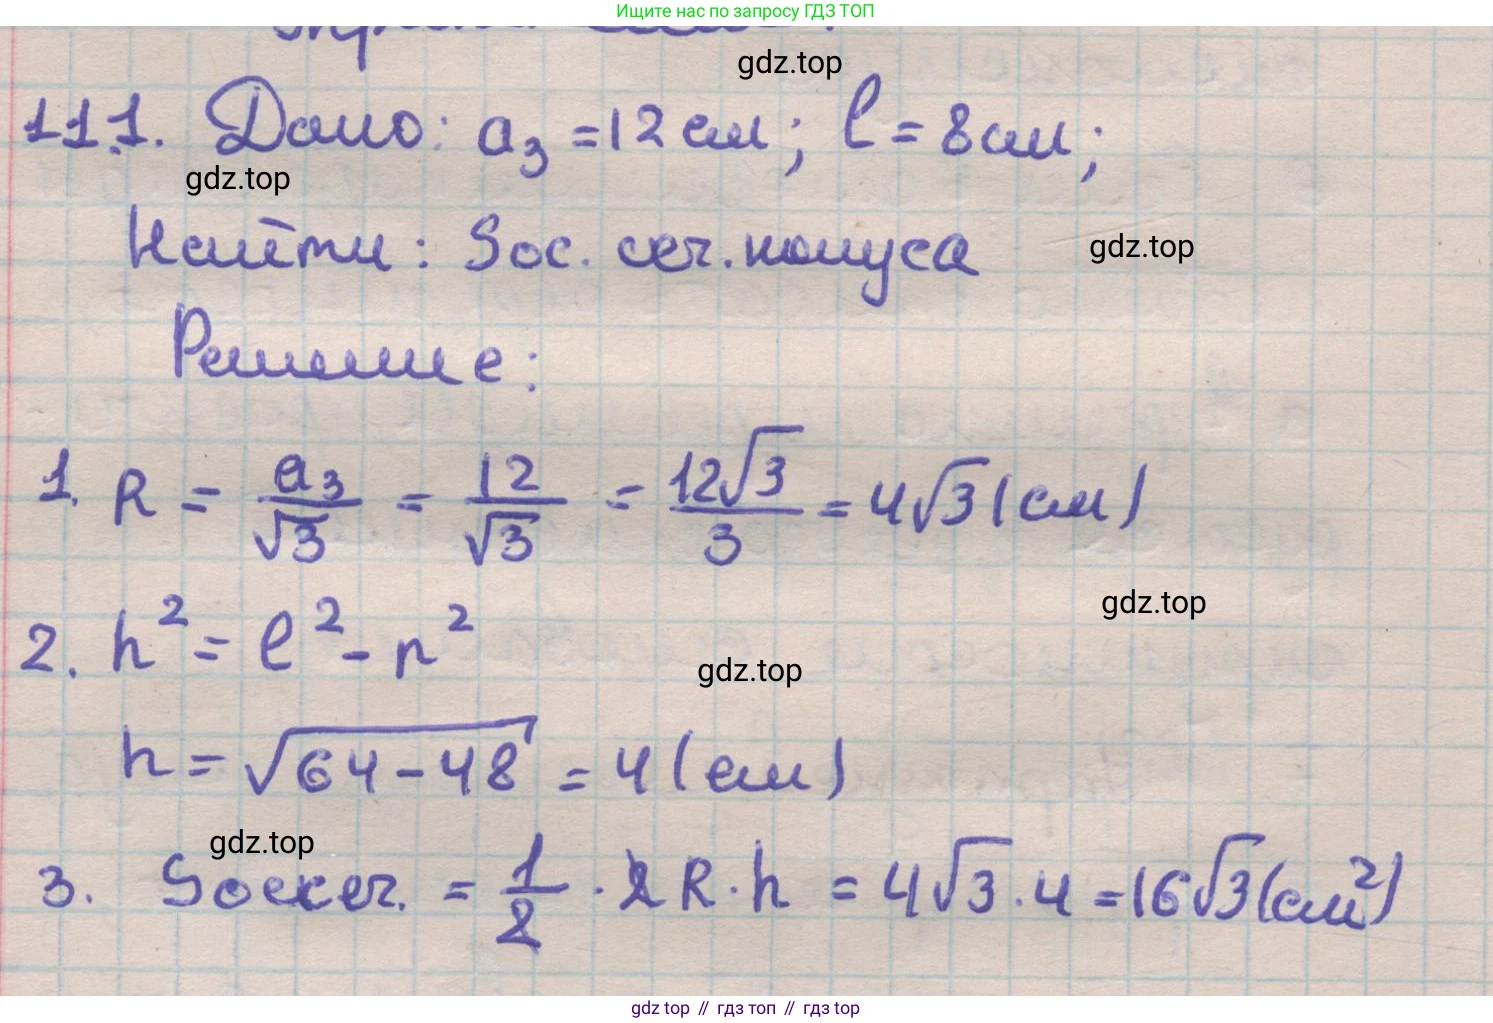 Ищите нас по запросу ГДЗ ТОП
gdz.top
11.1. Дано: a₃ = 12 см; l = 8 см;
gdz.top
Найти: Sос. сеч. конуса
gdz.top
Решение:
1. R = a₃/√3 = 12/√3 = 12√3/3 = 4√3 (см)
gdz.top
2. h² = l² - r²
gdz.top
h = √(64 - 48) = 4 (см)
gdz.top
3. Sос сеч. = 1/2 · 2 R · h = 4√3 · 4 = 16√3 (см²)
gdz top // гдз топ // gdz top